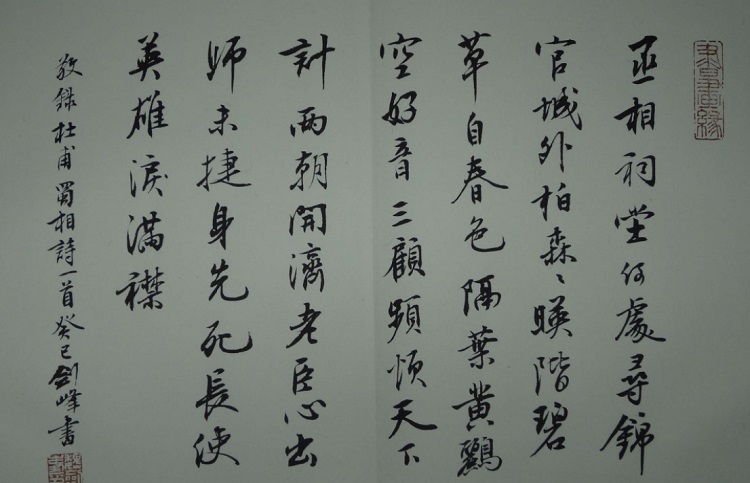 書畫緣
丞相祠堂何處尋錦
官城外柏森〻暎階碧
草自春色隔葉黄鸝
空好音三顧頻煩天下
計兩朝開濟老臣心出
師未捷身先死長使
英雄淚滿襟
敬録杜甫蜀相詩一首癸巳劍峰書